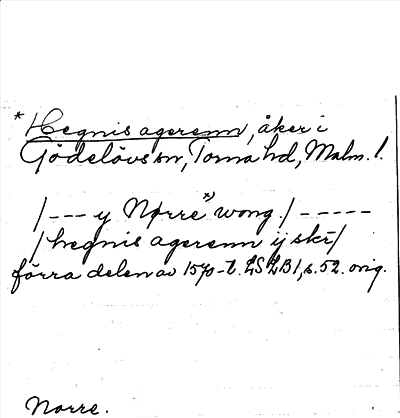 * Hegnis agerenn, åker i
Gödelövs sn, Torna hd, Malm. l.
/--- y Nørre *) wong./-----
/hegnis agerenn ij skr/
förra delen av 1570-t. LSLB1, s. 52. orig.
Norre.